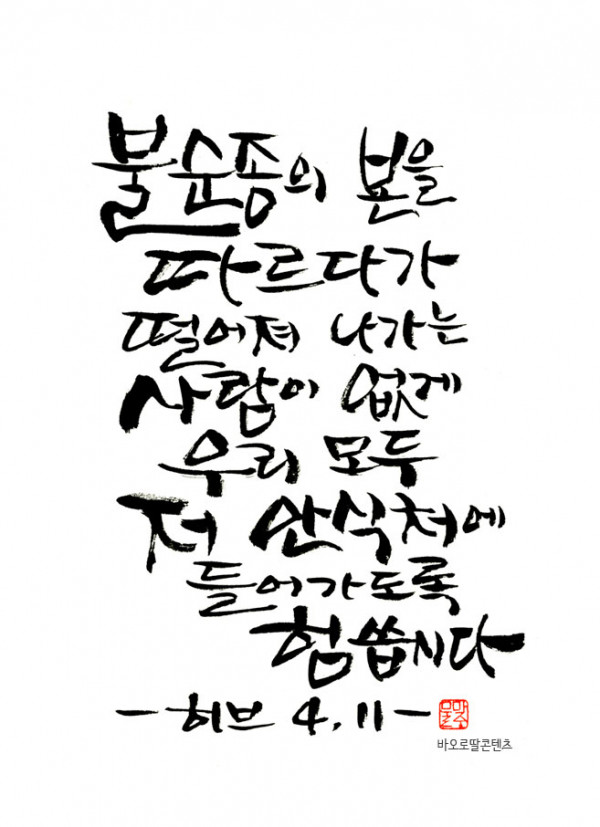 불순종의 본을
따르다가
떨어져 나가는
사람이 없게
우리 모두
저 안식처에
들어가도록
힘씁시다
- 히브 4, 11 -
바오로딸콘텐츠